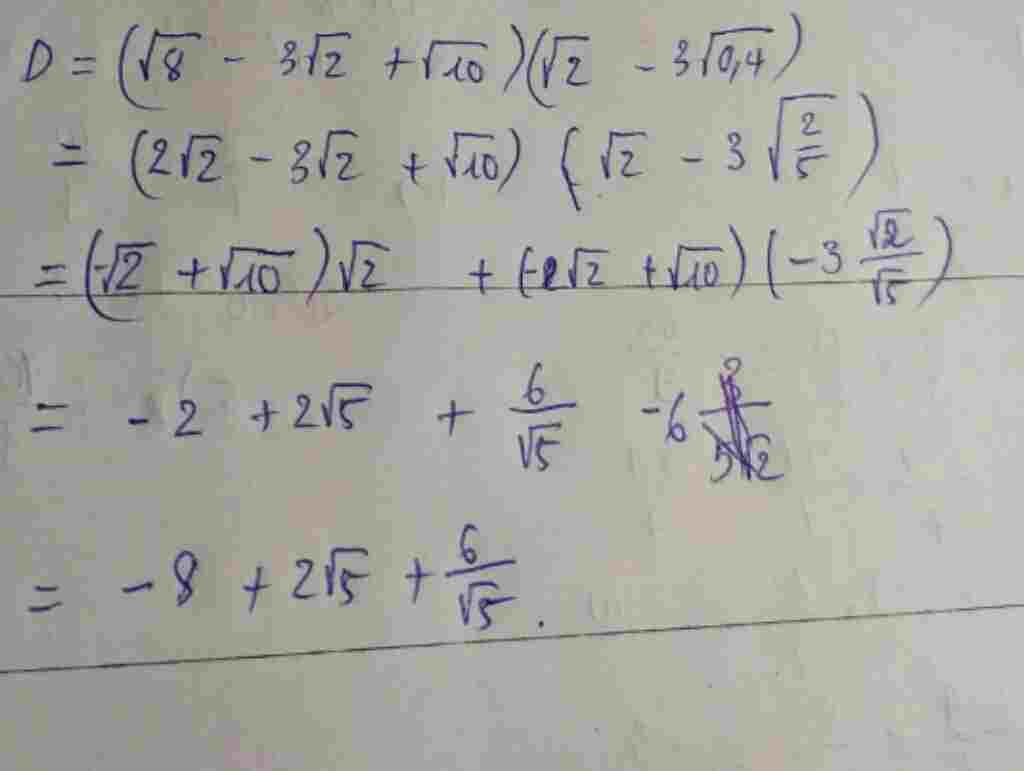 D = (√8 - 3√2 + √10)(√2 - 3√0,4)
= (2√2 - 3√2 + √10) (√2 - 3√(2/5))
= (-√2 + √10)√2 + (-√2 + √10)(-3 √2/√5)
= -2 + 2√5 + 6/√5 - 6
= -8 + 2√5 + 6/√5.